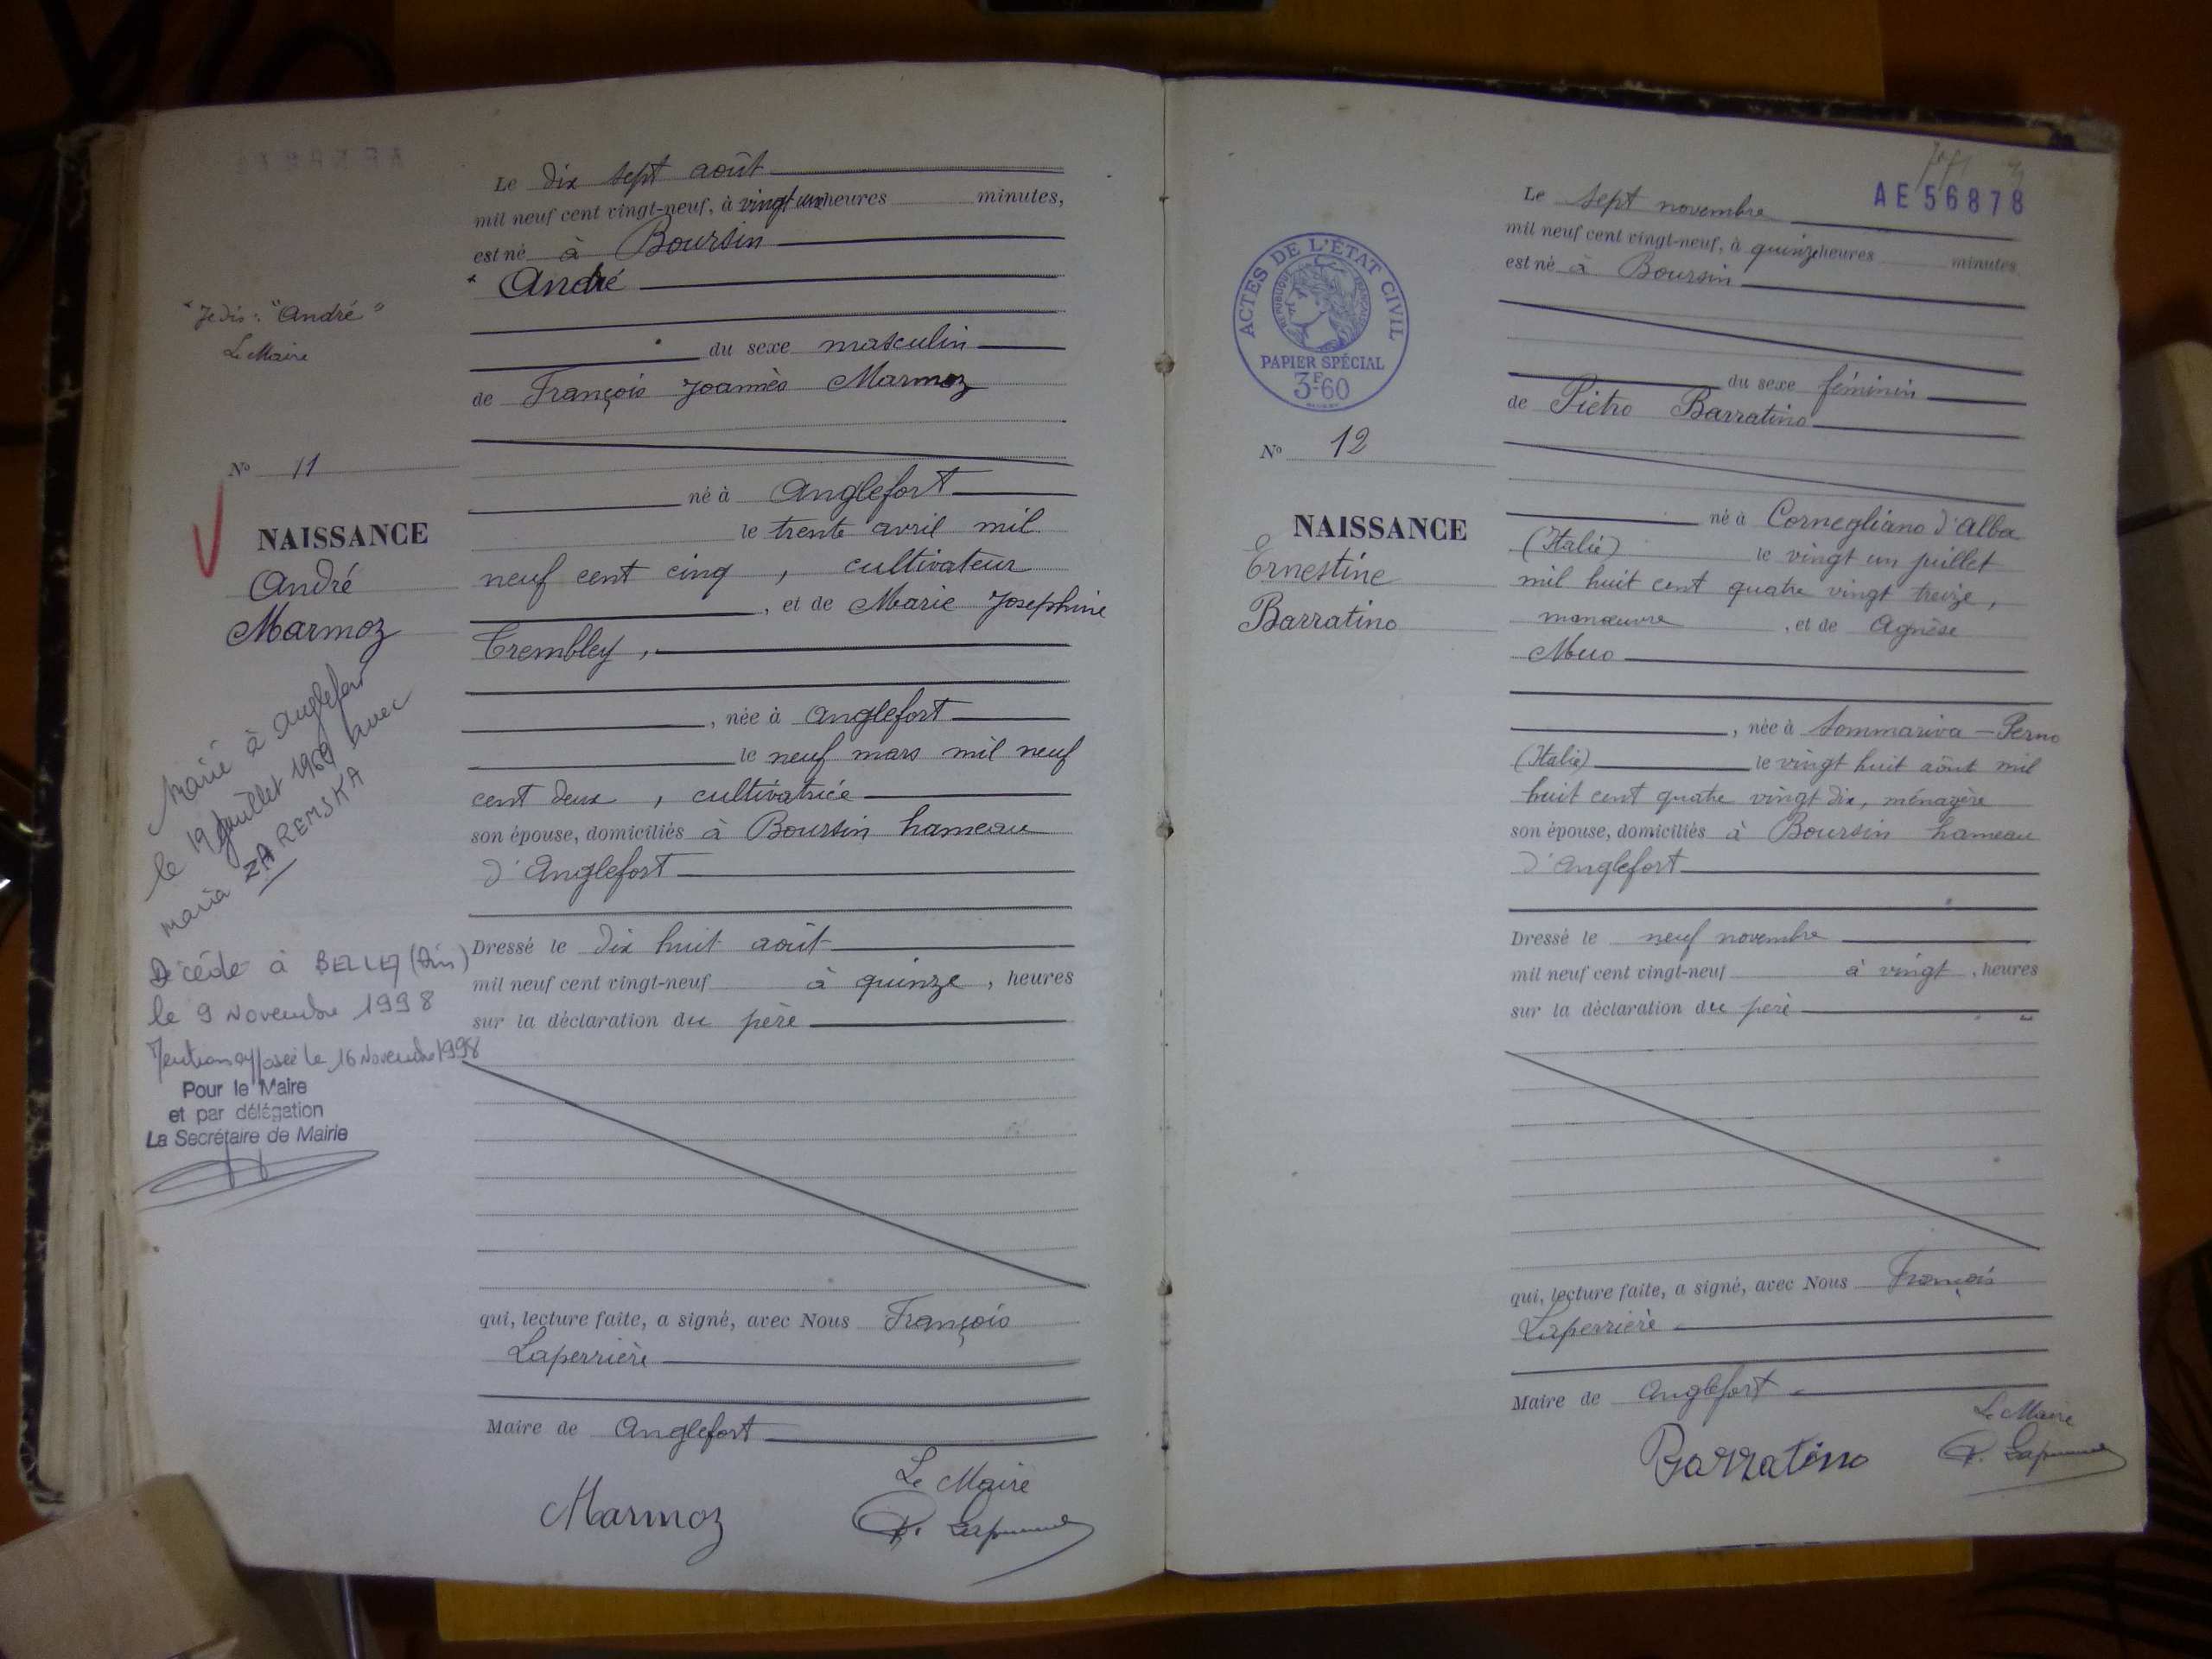 Le dix sept août
mil neuf cent vingt-neuf, à vingt une heures minutes,
est né à Boursin
* André
* Je dis : "André"
Le Maire
du sexe masculin
de François Joannès Marmoz
N° 11
né à Anglefort
le trente avril mil
neuf cent cinq , cultivateur
, et de Marie Josephine
Trembley ,
, née à Anglefort
le neuf mars mil neuf
cent deux , cultivatrice
son épouse, domiciliés à Boursin hameau
d'Anglefort
NAISSANCE
André
Marmoz
Marié à Anglefort
le 19 juillet 1969 avec
Maria ZAREMSKA
Décédé à BELLEY (Ain)
le 9 Novembre 1998
Mention apposée le 16 Novembre 1998
Pour le Maire
et par délégation
La Secrétaire de Mairie
Dressé le dix huit août
mil neuf cent vingt-neuf à quinze , heures
sur la déclaration du père
qui, lecture faite, a signé, avec Nous François
Laperrière
Maire de Anglefort
Le Maire
Marmoz
AE56878
Le sept novembre
mil neuf cent vingt-neuf, à quinze heures minutes
est né à Boursin
ACTES DE L'ÉTAT CIVIL
RÉPUBLIQUE FRANÇAISE
PAPIER SPÉCIAL
3F60
du sexe féminin
de Pietro Barratino
N° 12
né à Cornegliano d'Alba
(Italie) le vingt un juillet
mil huit cent quatre vingt treize,
manœuvre , et de Agnèse
, née à Sommariva - Perno
(Italie) le vingt huit août mil
huit cent quatre vingt dix, ménagère
son épouse, domiciliés à Boursin hameau
d'Anglefort
NAISSANCE
Ernestine
Barratino
Dressé le neuf novembre
mil neuf cent vingt-neuf à vingt , heures
sur la déclaration du père
qui, lecture faite, a signé, avec Nous François
Laperrière
Maire de Anglefort
Le Maire
Barratino